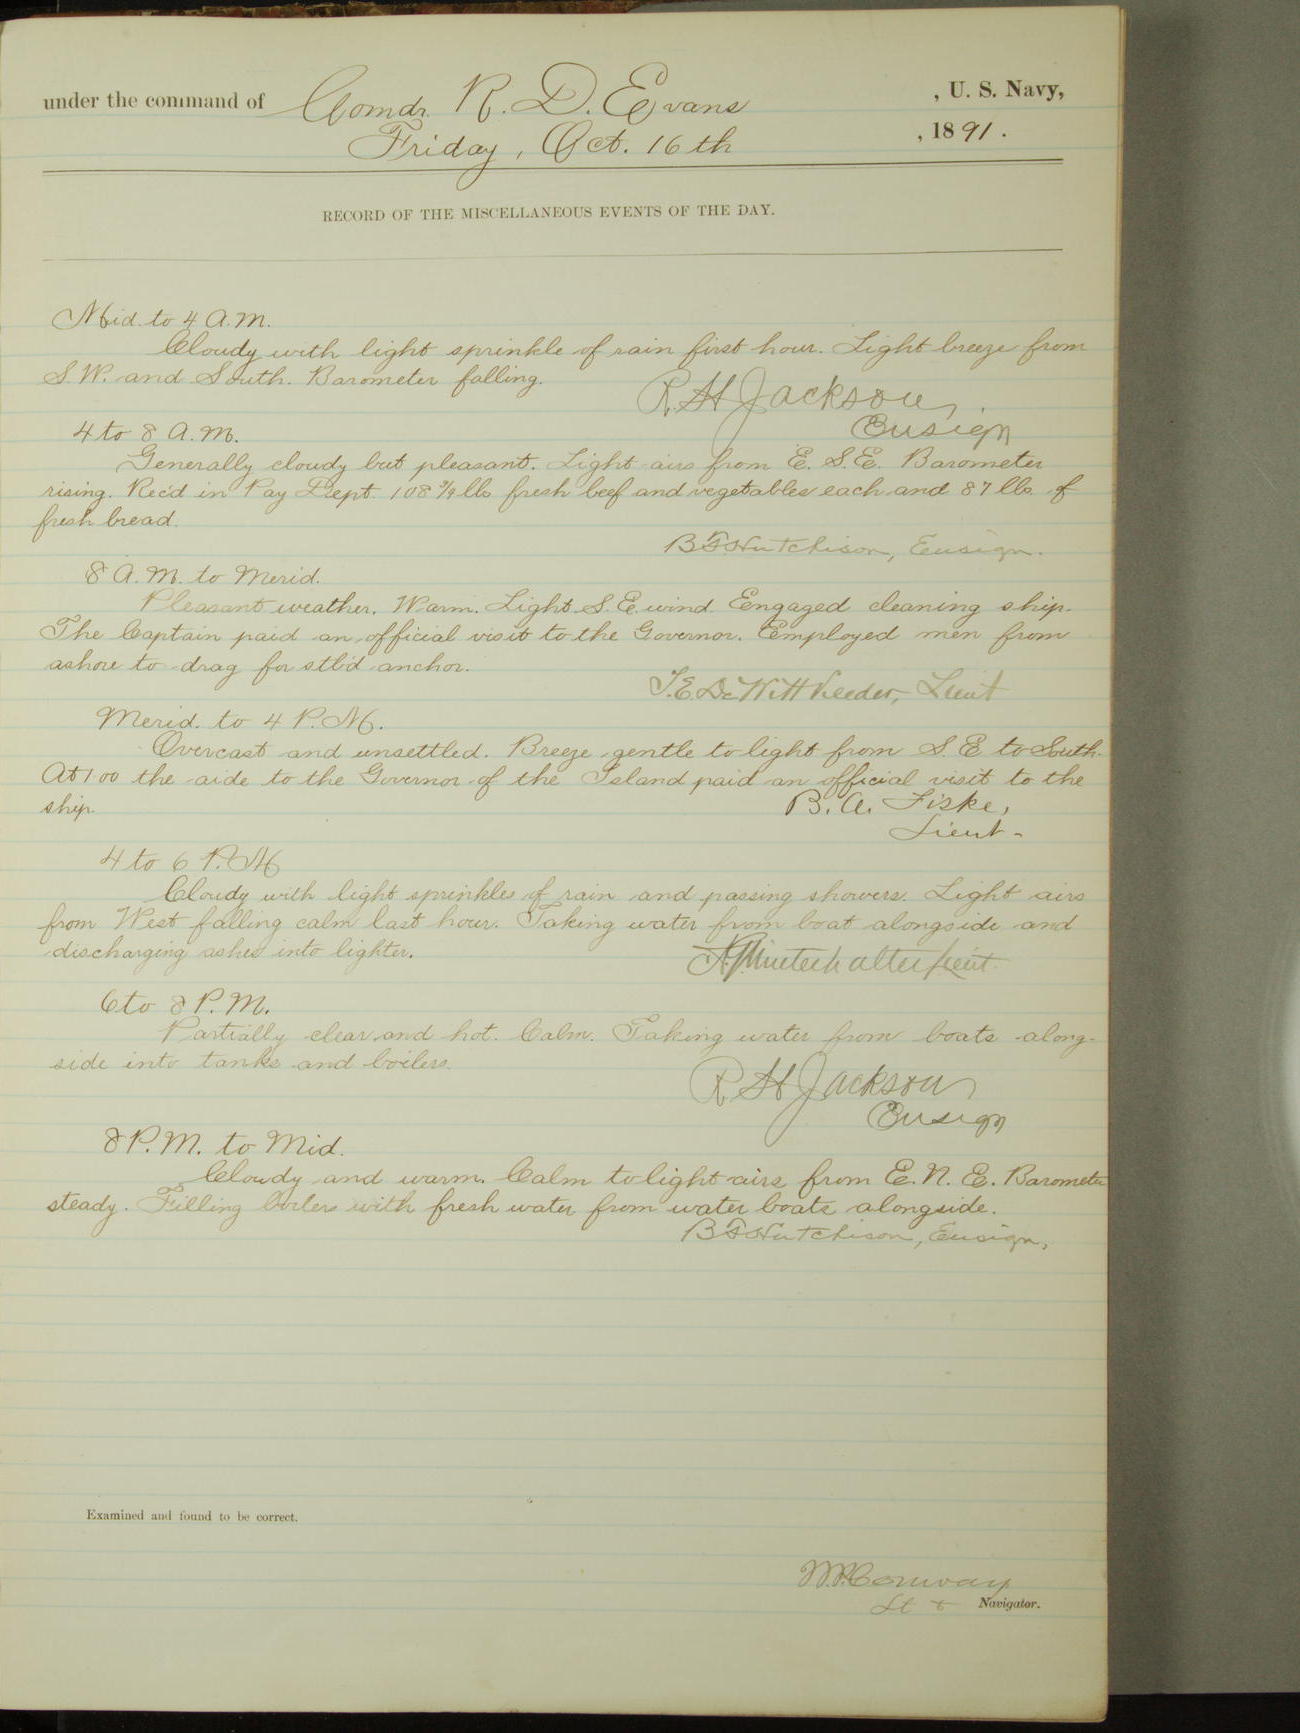 under the command of Comdr. R. D. Evans, U. S. Navy,
Friday, Oct. 16th, 1891.
RECORD OF THE MISCELLANEOUS EVENTS OF THE DAY.
Mid. to 4 A.M.
Cloudy with light sprinkle of rain first hour. Light breeze from
S.W. and South. Barometer falling.
R.H. Jackson,
Ensign
4 to 8 A.M.
Generally cloudy but pleasant. Light airs from E. S.E. Barometer
rising. Rec'd in Pay Dept. 108 lbs fresh beef and vegetables each and 87 lbs of
fresh bread.
B.F. Hutchison, Ensign.
8 A.M. to Merid.
Pleasant weather. Warm. Light S.E. wind. Eengaged cleaning ship.
The Captain paid an official visit to the Governor. Employed men from
ashore to drag for stb'd anchor.
T.E. DeWitt Veeder, Lieut
Merid. to 4 P.M.
Overcast and unsettled. Breeze gentle to light from S.E to South.
At 1 00 the aide to the Governor of the Island paid an official visit to the
ship.
B.A. Fiske,
Lieut-
4 to 6 P.M
Cloudy with light sprinkles of rain and passing showers. Light airs
from West falling calm last hour. Taking water from boat alongside and
discharging ashes into lighter.
Lieut.
6 to 8 P.M.
Partially clear and hot. Calm. Taking water from boats along-
side into tanks and boilers.
R.H. Jackson
Ensign
8 P.M. to Mid.
Cloudy and warm. Calm to light airs from E.N.E. Barometer
steady. Filling boilers with fresh water from water boats alongside.
B.F. Hutchison, Ensign,
Examined and found to be correct.
W.P. Conway
Lt & Navigator.